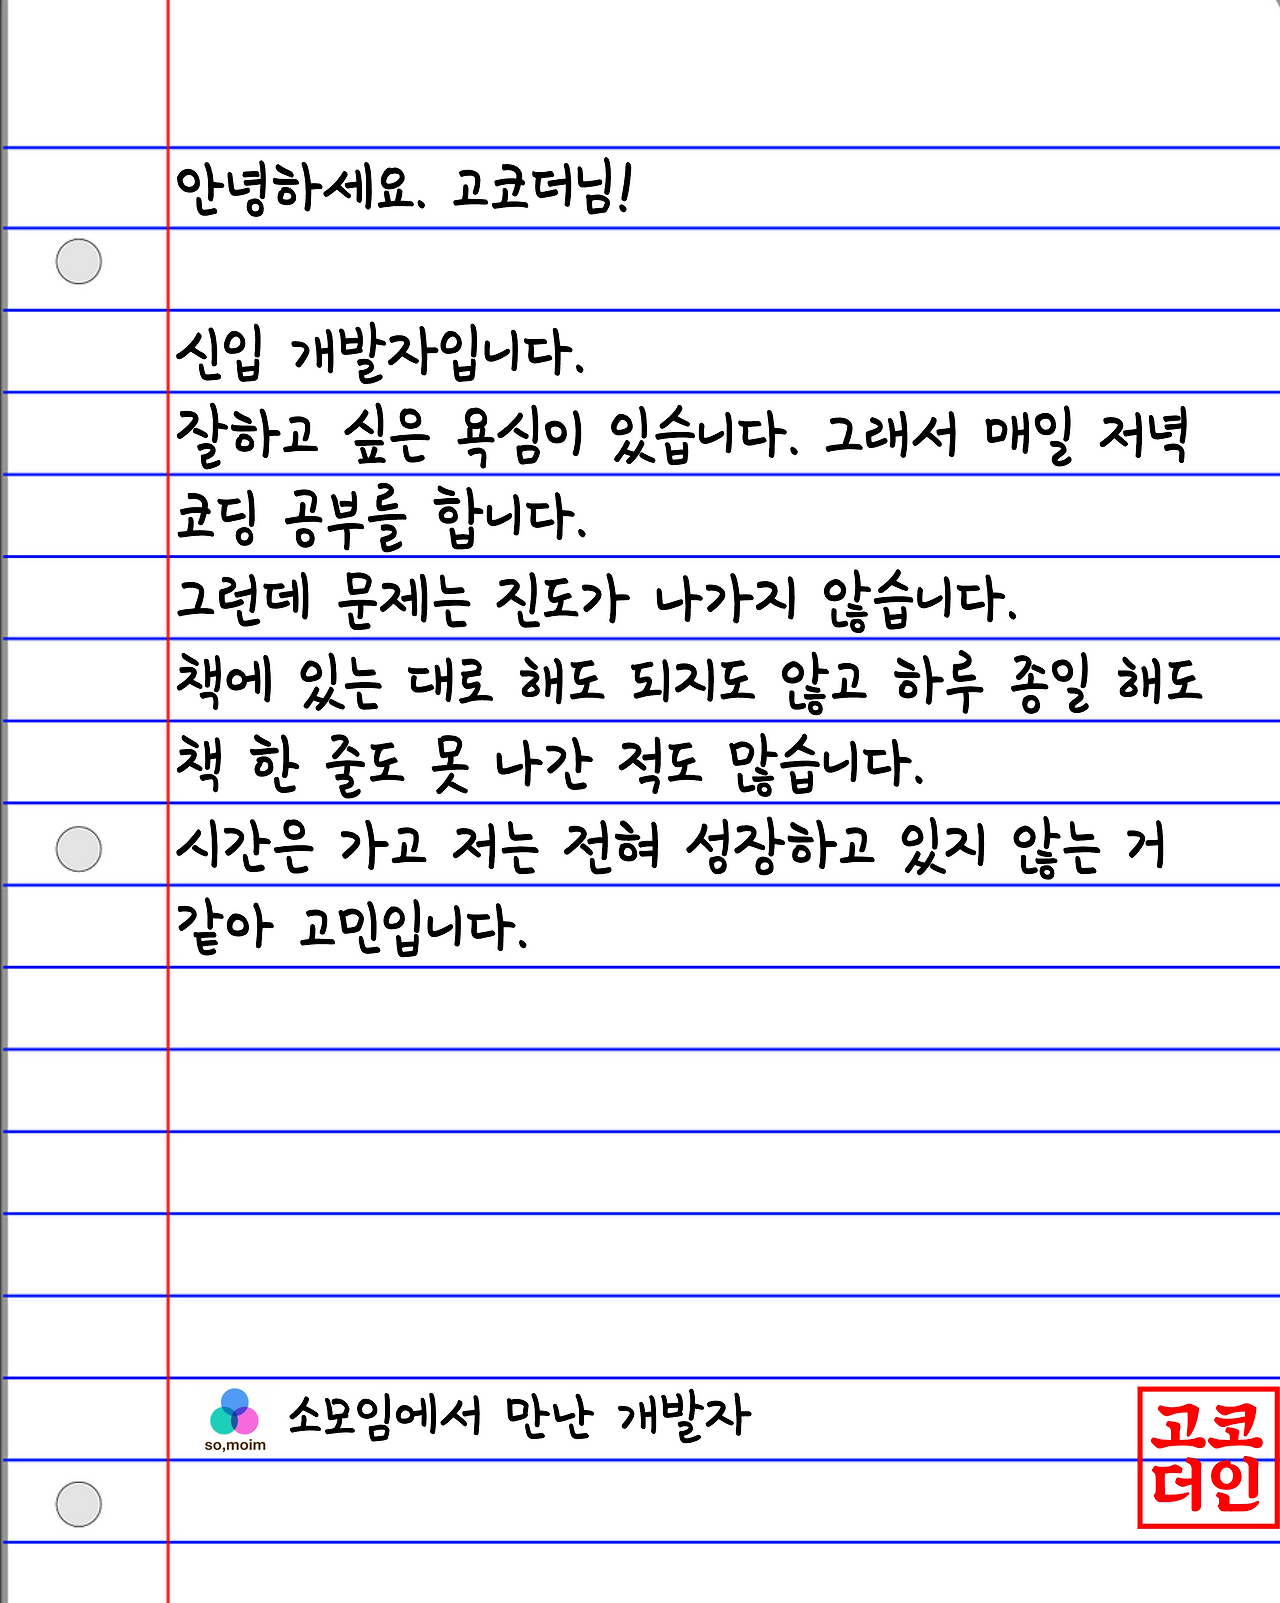 안녕하세요. 고코더님!
신입 개발자입니다.
잘하고 싶은 욕심이 있습니다. 그래서 매일 저녁
코딩 공부를 합니다.
그런데 문제는 진도가 나가지 않습니다.
책에 있는 대로 해도 되지도 않고 하루 종일 해도
책 한 줄도 못 나간 적도 많습니다.
시간은 가고 저는 전혀 성장하고 있지 않는 거
같아 고민입니다.
so,moim 소모임에서 만난 개발자
고코
더인